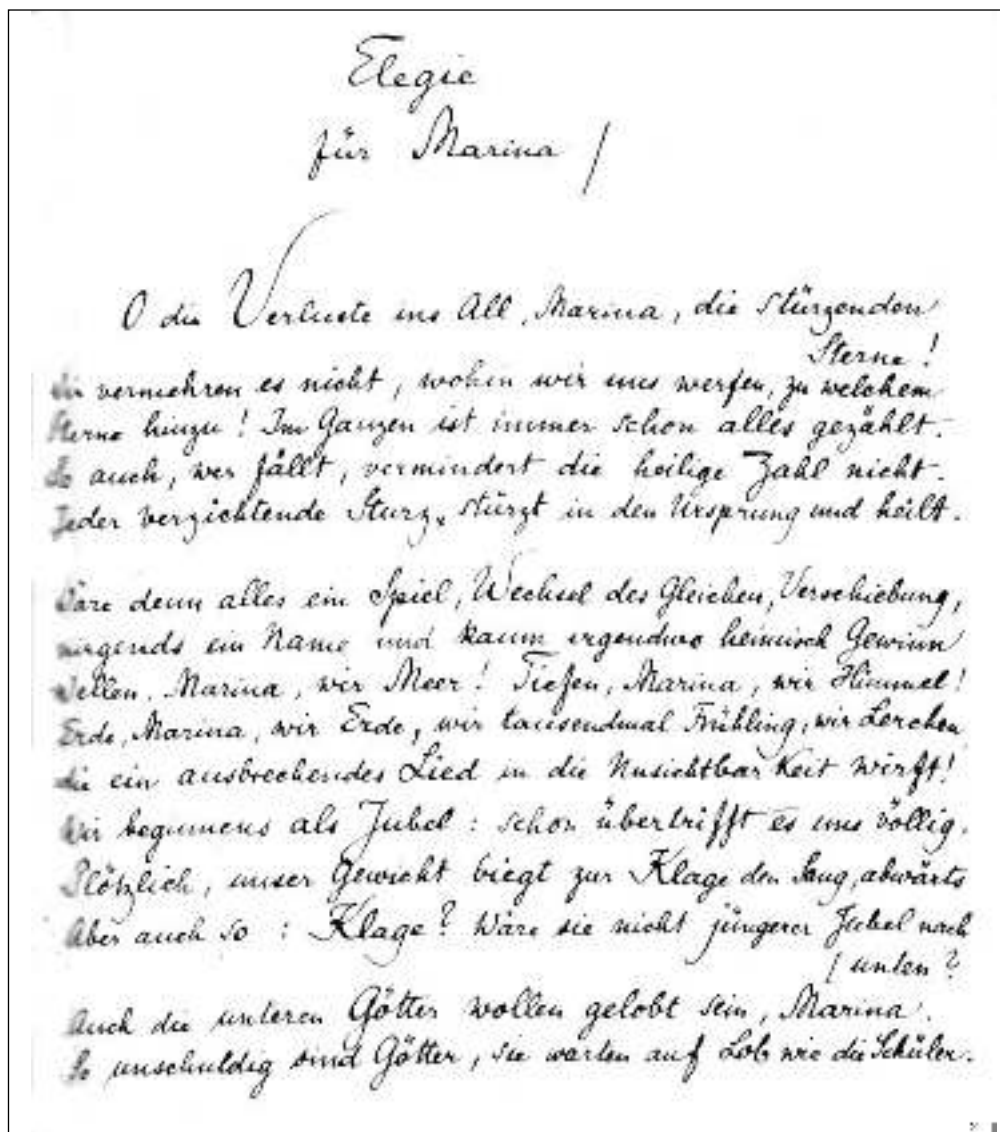 Elegie
für Marina /
O die Verluste ins All, Marina, die stürzenden
Sterne!
Wir vermehren es nicht, wohin wir uns werfen, zu welchem
Sterne hinzu! Im Ganzen ist immer schon alles gezählt.
So auch, wer fällt, vermindert die heilige Zahl nicht.
Jeder verzichtende Sturz, stürzt in den Ursprung und heilt.
Wäre denn alles ein Spiel, Wechsel des Gleichen, Verschiebung,
nirgends ein Name und kaum irgendwo heimisch Gewinn
Wellen, Marina, wir Meer! Tiefen, Marina, wir Himmel!
Erde, Marina, wir Erde, wir tausendmal Frühling, wir Lerchen,
die ein ausbrechendes Lied in die Unsichtbarkeit wirft!
Wir beginnens als Jubel: schon übertrifft es uns völlig.
Plötzlich, unser Gewicht biegt zur Klage den Sang, abwärts
Aber auch so: Klage? Wäre sie nicht jüngerer Jubel nach
/ unten?
Auch die unteren Götter wollen gelobt sein, Marina.
So unschuldig sind Götter, sie warten auf Lob wie die Schüler.